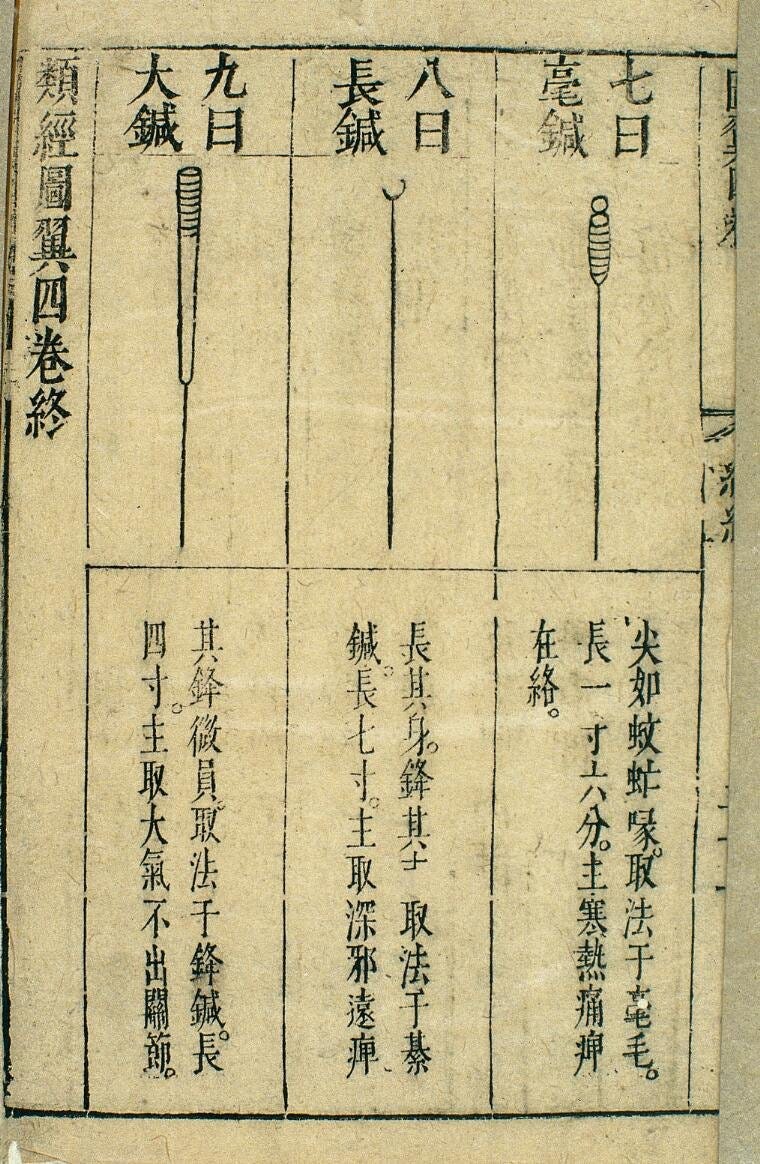 七曰
毫鍼
尖如蚊虻喙。取法于毫毛。
長一寸六分。主寒熱痛痺
在絡。
八曰
長鍼
長其身。鋒其 取法于綦
鍼。長七寸。主取深邪遠痺
九曰
大鍼
其鋒微員。取法于鋒鍼。長
四寸。主取大氣不出關節。
類經圖翼四卷終